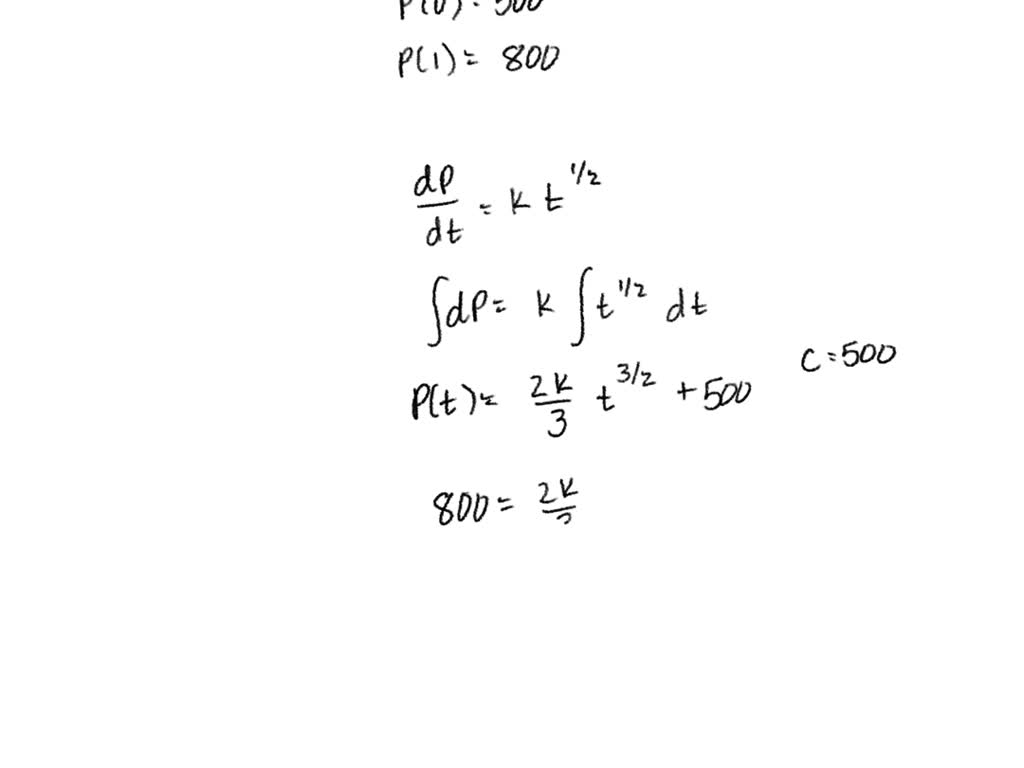 P(0) = 500
P(1) = 800
dP/dt = k t^1/2
∫dP = k ∫t^1/2 dt
C = 500
P(t) = 2k/3 t^3/2 + 500
800 = 2k/